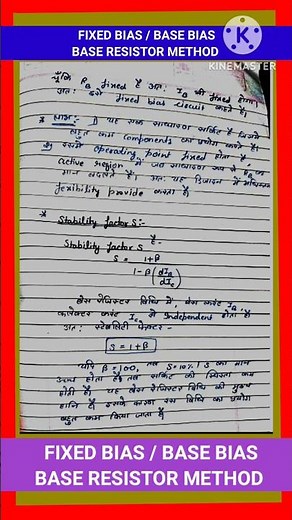 FIXED BIAS / BASE BIAS
BASE RESISTOR METHOD
K
KINEMASTER
चूंकि R_B fixed है अतः I_B भी fixed होगा।
अतः इसे fixed bias circuit कहते हैं।
* लाभ:- 1) यह एक साधारण सर्किट है जिसमें
बहुत कम components का प्रयोग करते हैं।
2) इसमें operating point fixed होता है
active region में जब साधारण रूप से R_B का
मान बदलते हैं। अतः यह डिजाइन में अधिकतम
flexibility provide करता है
* Stability factor S:-
Stability factor S है-
S = 1+β / 1-β(dI_B/dI_C)
बेस रेजिस्टर विधि में, बेस करंट I_B,
कलेक्टर करंट I_C से independent होता है
अतः स्टेबिलिटी फैक्टर -
S = 1+β
यदि β=100, तब S=101 S का मान
उच्च होता है तब सर्किट की स्थिरता कम
होती है, यह बेस रेजिस्टर विधि की मुख्य
हानि है इसके कारण इस विधि का प्रयोग
बहुत कम किया जाता है
FIXED BIAS / BASE BIAS
BASE RESISTOR METHOD